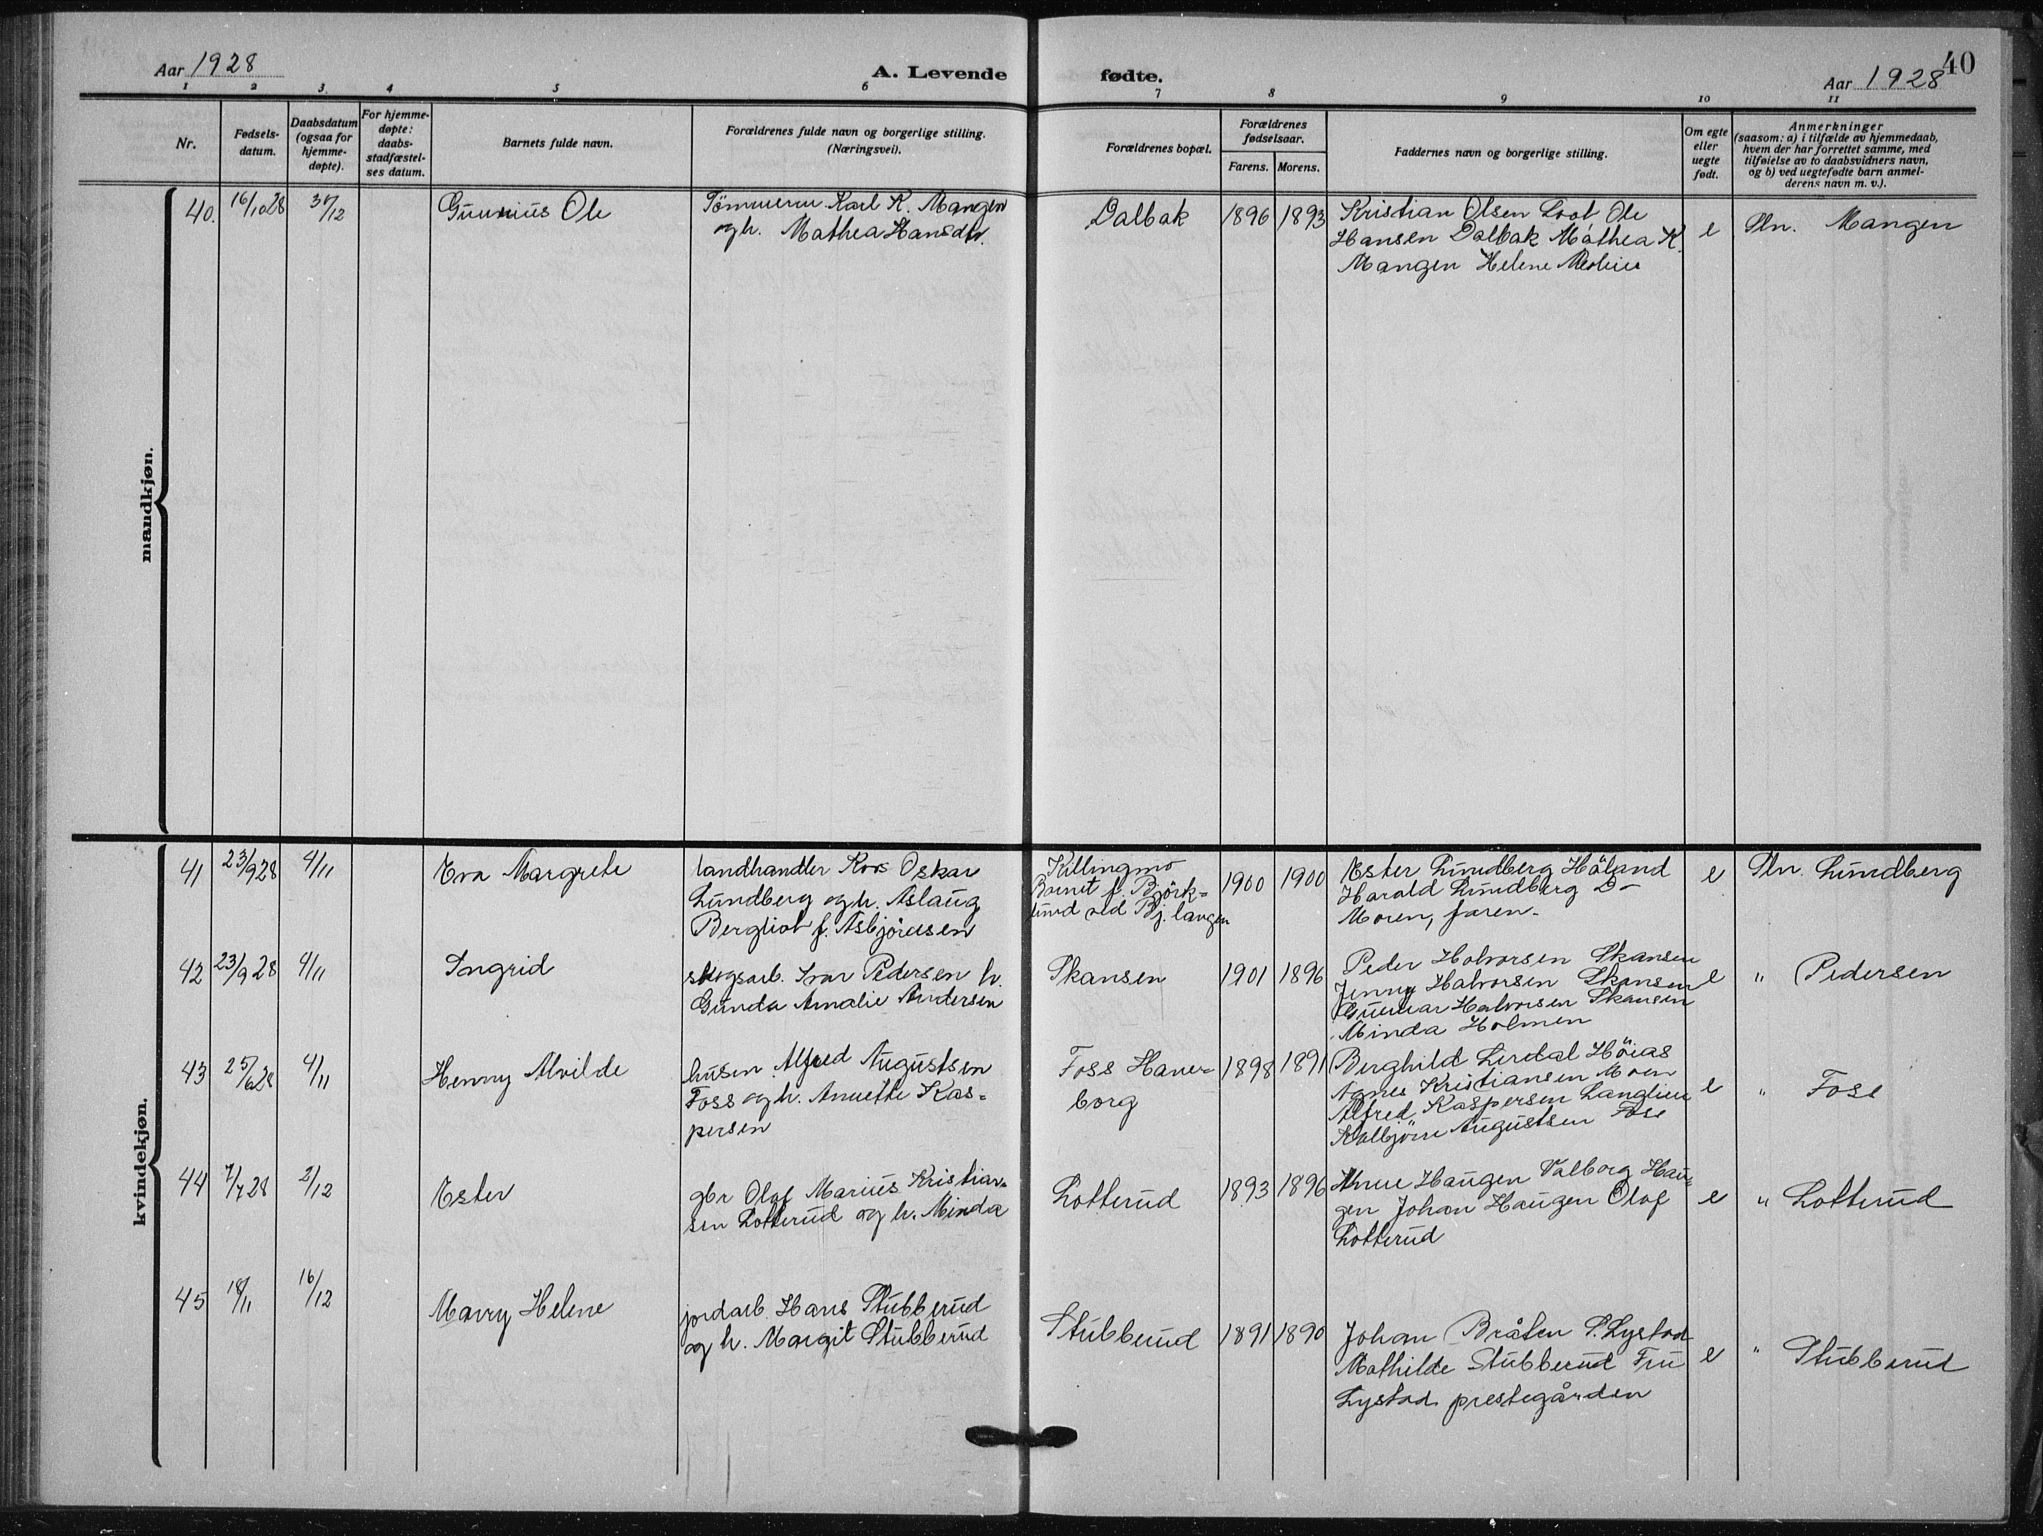 Aar 1928
A. Levende fødte.
40
Aar 1928
1 2 3 4 5 6 7 8 9 10 11
Nr.
Fødsels-
datum.
Daabsdatum
(ogsaa for
hjemme-
døpte).
For hjemme-
døpte:
daabs-
stadfæstel-
ses datum.
Barnets fulde navn.
Forældrenes fulde navn og borgerlige stilling.
(Næringsvei).
Forældrenes bopæl.
Forældrenes
fødselsaar.
Farens. Morens.
Faddernes navn og borgerlige stilling.
Om egte
eller
uegte
født.
Anmerkninger
(saasom: a) i tilfælde av hjemmedaab,
hvem der har forrettet samme, med
tilføielse av to daabsvidners navn,
og b) ved uegtefødte barn anmel-
derens navn m. v.).
mandkjøn.
40. 16/10 28
Gunnius Ole
Tømmerm Karl K. Mangen
og h. Mathea Hansdtr.
Dalbak
1896 1893
Kristian Olsen Ole
Hansen Dalbak Mathea K.
Mangen Helene
e
Sln. Mangen
kvindekjøn.
41 23/9 28 4/11
Eva Margrete
landhandler Oskar
Lundberg og h. Aslaug
Bergliot f. Asbjörnsen
Killingmo
Barnet f. Björk-
lund ved Bj. langen
1900 1900
Ester Lundberg Höland
Harald Lundberg D-
Moren, faren.
e
Sln. Lundberg
42 23/9 28 4/11
Ingrid
skogsarb. Ivar Pedersen h.
Gunda Amalie Andersen
Skansen
1901 1896
Peder Halvorsen Skansen
Jenny Halvorsen Skansen
Gunnar Halvorsen Skansen
Minda Holmen
e
" Pedersen
43 25/6 28 4/11
Henny Alvilde
husm Alfred Augustsen
Foss og h. Annette Kas-
persen
Foss Hane-
borg
1898 1891
Berghild Lerdal Höias
Agnes Kristiansen Moen
Alfred Kaspersen
Kolbjörn Augustsen Foss
e
" Foss
44 7/7 28 2/12
Ester
gbr Olaf Marius Kristian-
sen Lotterud og h. Minda
Lotterud
1893 1896
Anne Haugen Valborg Hau-
gen Johan Haugen Olaf
Lotterud
e
" Lotterud
45 18/11 16/12
Marry Helene
jordarb. Hans Stubberud
og h. Margit Stubberud
Stubberud
1891 1890
Johan Bråten S. Lystad
Mathilde Stubberud Fru
Lystad prestegården
e
" Stubberud